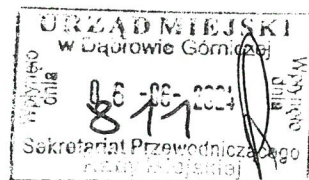 URZĄD MIEJSKI
w Dąbrowie Górniczej
Wpłynęło
dnia
06-06-2024
811
Wpłynęło
dnia
Sekretariat Przewodniczącego
Rady Miejskiej